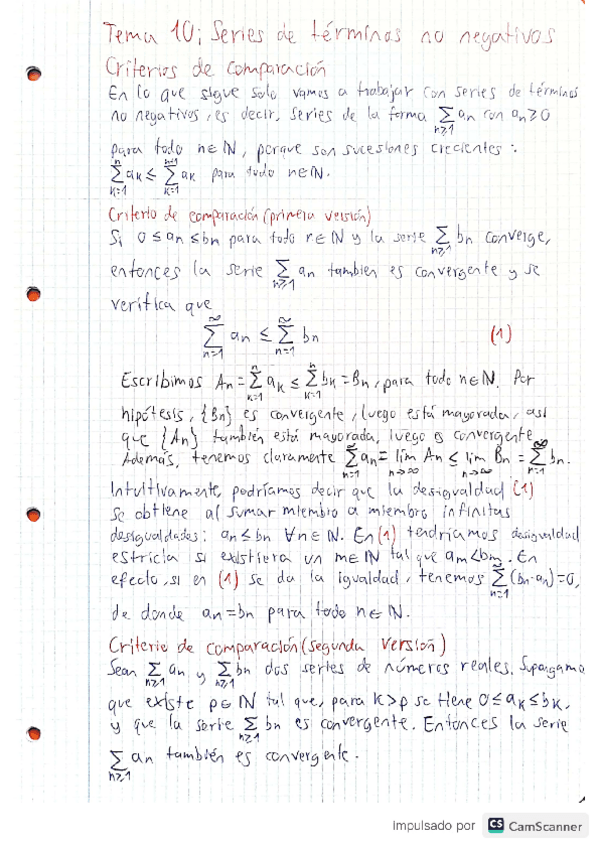 Tema 10: Series de términos no negativos
Criterios de comparación
En lo que sigue solo vamos a trabajar con series de términos
no negativos, es decir, series de la forma ∑_{n≥1} an con an≥0
para todo n∈ℕ, porque son sucesiones crecientes:
∑_{k=1}^{n} ak ≤ ∑_{k=1}^{n+1} ak para todo n∈ℕ.
Criterio de comparación (primera versión)
Si 0≤an≤bn para todo n∈ℕ y la serie ∑_{n≥1} bn converge,
entonces la serie ∑_{n≥1} an tambien es convergente y se
verifica que
∑_{n=1}^{∞} an ≤ ∑_{n=1}^{∞} bn (1)
Escribimos An=∑_{k=1}^{n} ak ≤ ∑_{k=1}^{n} bk=Bn, para todo n∈ℕ. Por
hipótesis, {Bn} es convergente, luego está mayorada, así
que {An} también está mayorada, luego es convergente
Además, tenemos claramente ∑_{n=1}^{∞} an= lím_{n→∞} An ≤ lím_{n→∞} Bn = ∑_{n=1}^{∞} bn.
Intuitivamente, podríamos decir que la desigualdad (1)
se obtiene al sumar miembro a miembro infinitas
desigualdades: an≤bn ∀n∈ℕ. En (1) tendríamos desigualdad
estricta si existiera un m∈ℕ tal que am<bm. En
efecto, si en (1) se da la igualdad, tenemos ∑_{n=1}^{∞} (bn-an)=0,
de donde an=bn para todo n∈ℕ.
Criterio de comparación (segunda versión)
Sean ∑_{n≥1} an y ∑_{n≥1} bn dos series de números reales. Supongamo
que existe p∈ℕ tal que, para k>p se tiene 0≤ak≤bk,
y que la serie ∑_{n≥1} bn es convergente. Entonces la serie
∑_{n≥1} an también es convergente.
Impulsado por CS CamScanner